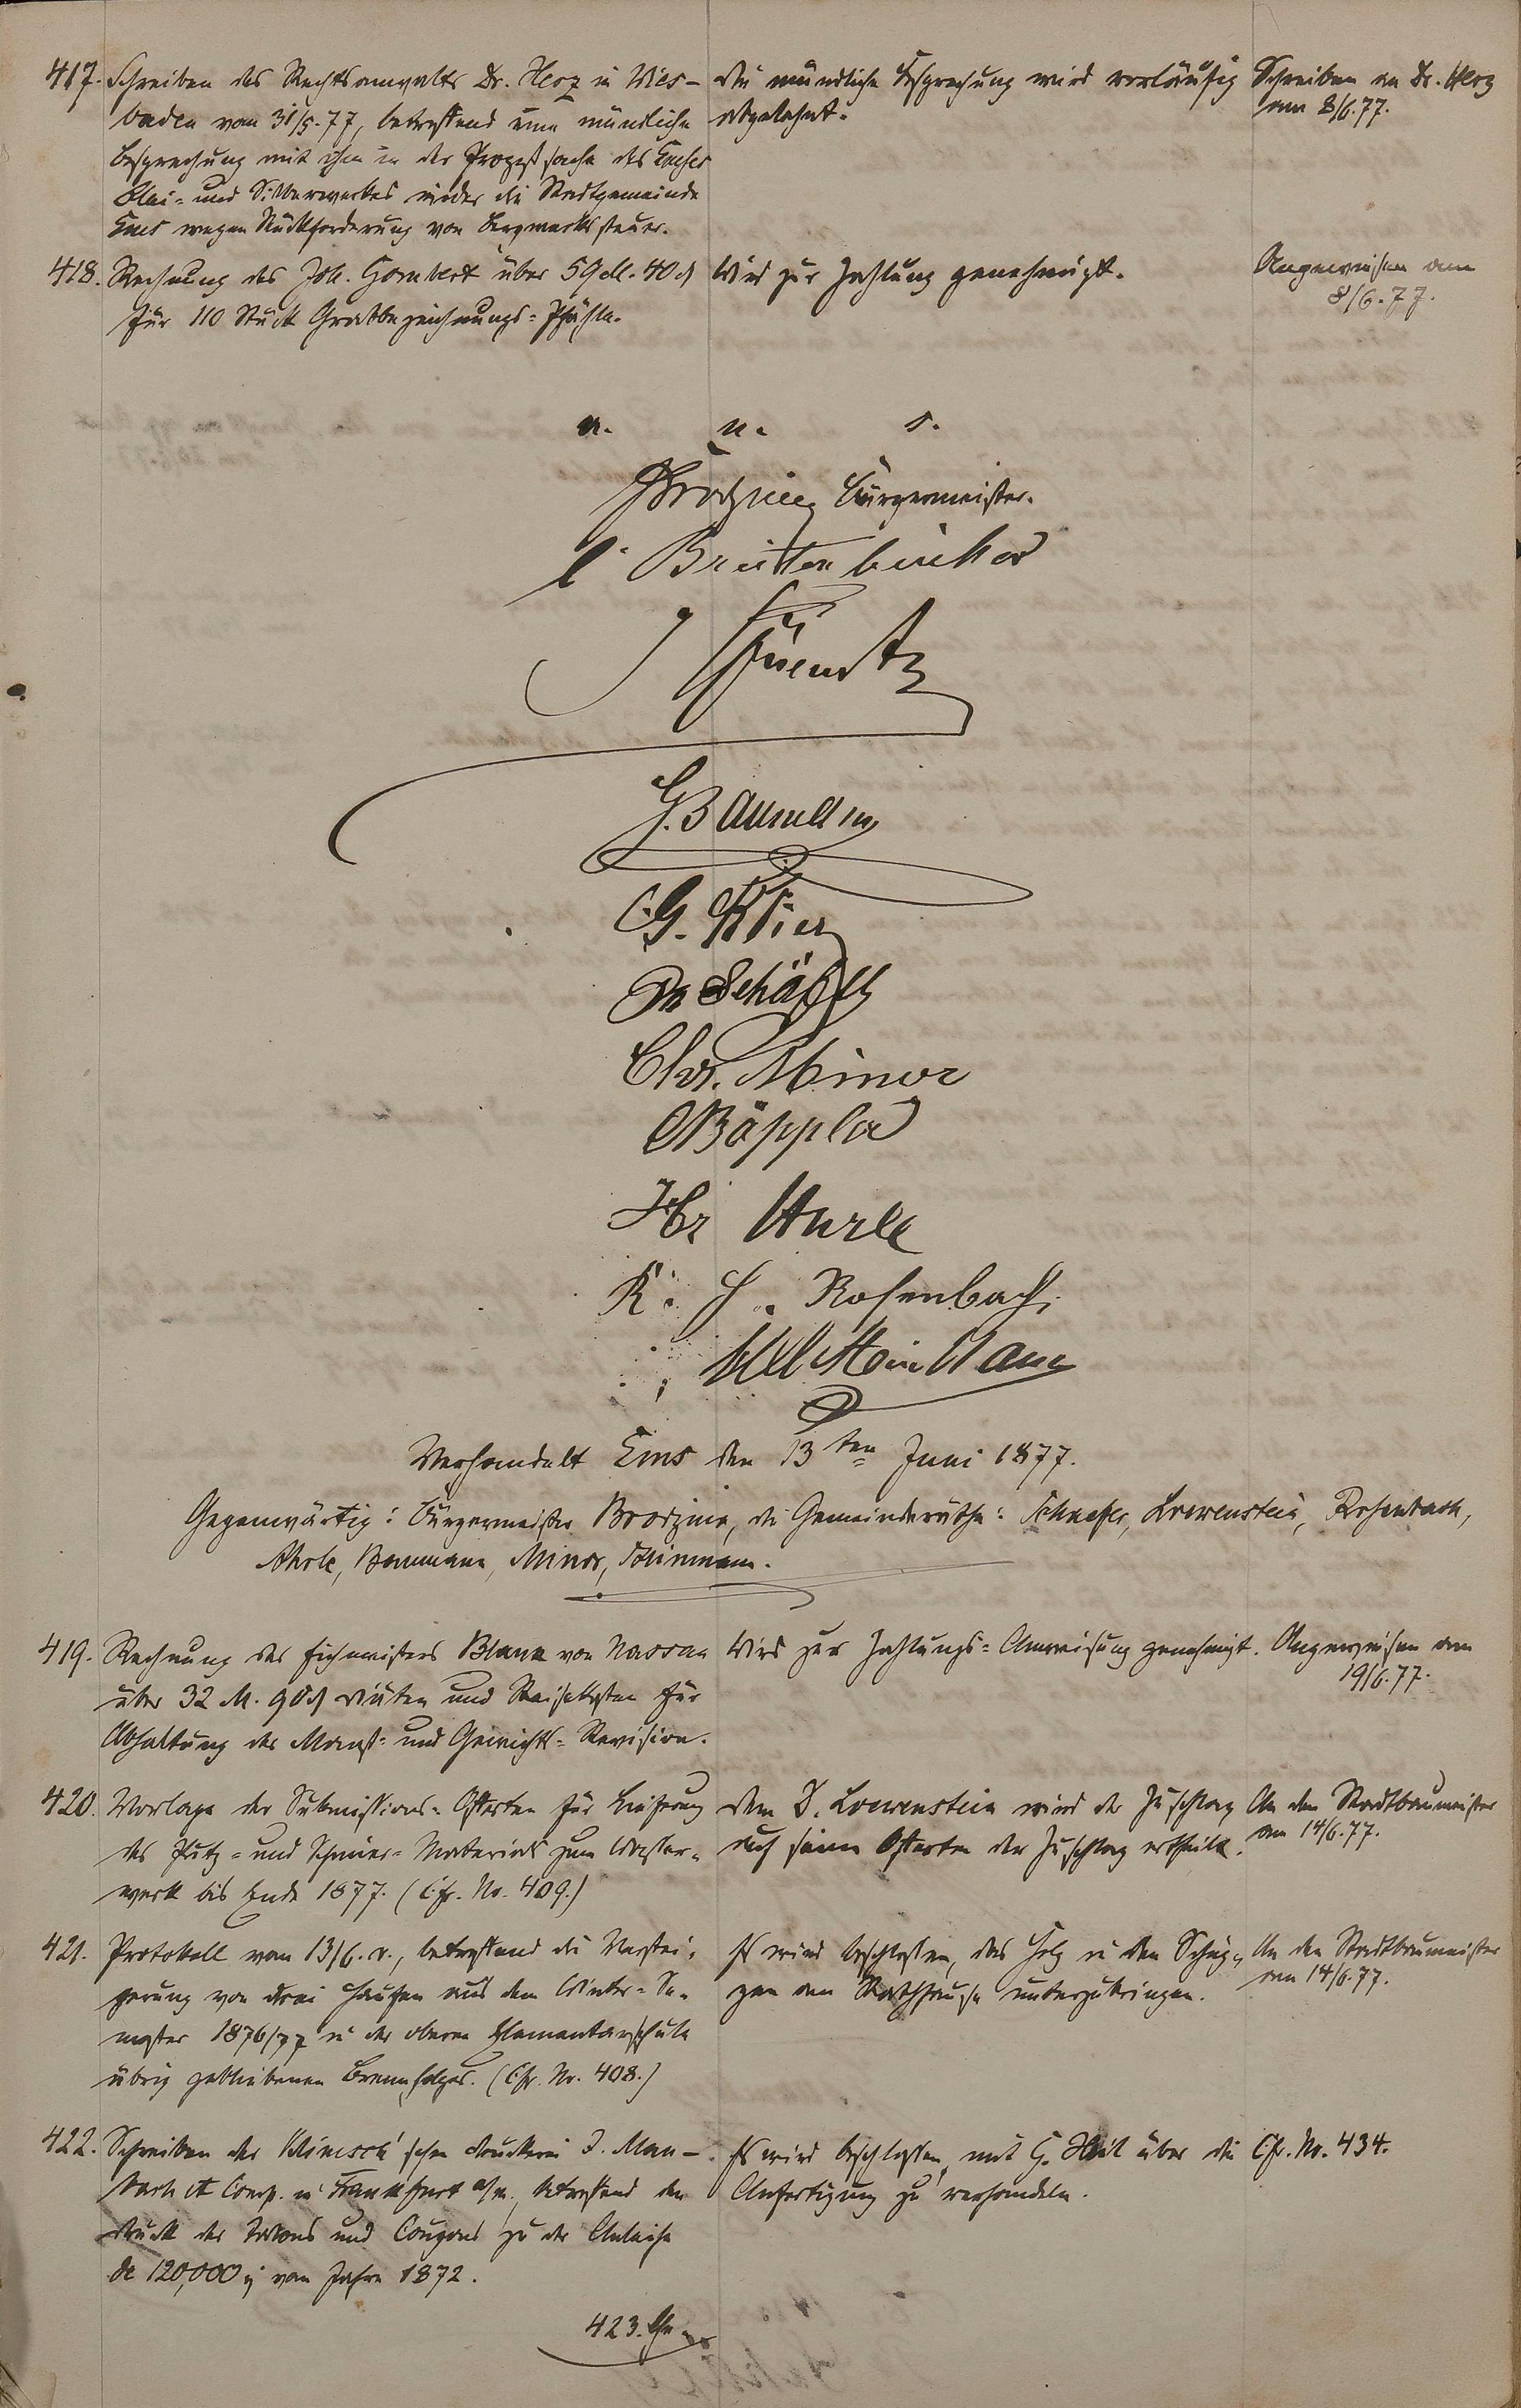 417. Schreiben des Rechtsanwalts Dr. Herz in Wies-
baden vom 31/5. 77, betreffend eine mündliche
Besprechung mit ihm in der Prozeßsache des Emser
Blei- und Silberwerkes wider die Stadtgemeinde
Ems wegen Rückforderung von Bergwerkssteuer.
Die mündliche Besprechung wird vorläufig
abgelehnt.
Schreiben an Dr. Herz
am 8/6. 77.
418. Rechnung des Joh. Gombert über 59 M. 40 ₰
für 110 Stück Grabbezeichnungs-Pfähle.
Wird zur Zahlung genehmigt.
Angewiesen am
8/6. 77.
v. u. s.
Brodzina Bürgermeister.
C Breitenbücher
G. Baumann
C. G. Klier
Dr Schäffer
Chr. Minor
Bäppler
Hr Ahrle
K. H. Rosenbach
Wl Steinmann
Verhandelt Ems den 13ten Juni 1877.
Gegenwärtig: Bürgermeister Brodzina, die Gemeinderäthe: Schaefer, Loewenstein, Rosenbach,
Ahrle, Baumann, Minor, Steinmann.
419. Rechnung des Eichmeisters Blank von Nassau
über 32 M. 90 ₰ Diäten und Reisekosten für
Abhaltung der Maaß- und Gewichts-Revision.
Wird zur Zahlungs-Anweisung genehmigt.
Angewiesen am
19/6. 77.
420. Vorlage der Submissions-Offerten für Lieferung
des Putz- und Schmier-Materials zum Wasser-
werk bis Ende 1877. (Cfr. No. 409.)
Dem J. Loewenstein wird der Zuschlag
auf seine Offerten der Zuschlag ertheilt.
An den Stadtbaumeister
am 14/6. 77.
421. Protokoll vom 13/6. c., betreffend die Verstei-
gerung von drei Haufen aus dem Winter-Se-
mester 1876/77 in der oberen Elementarschule
übrig gebliebenen Brennholzes. (Cfr. No. 408.)
Es wird beschlossen, das Holz in den Schup-
pen am Rathhause unterzubringen.
An den Stadtbaumeister
am 14/6. 77.
422. Schreiben der Klimsch'schen Druckerei J. Mau-
bach & Comp. in Frankfurt a/m., betreffend den
Druck der Talons und Coupons zu der Anleihe
de 120,000 vom Jahre 1872.
Es wird beschlossen, mit G. Heil über die
Anfertigung zu verhandeln.
Cfr. No. 434.
423.